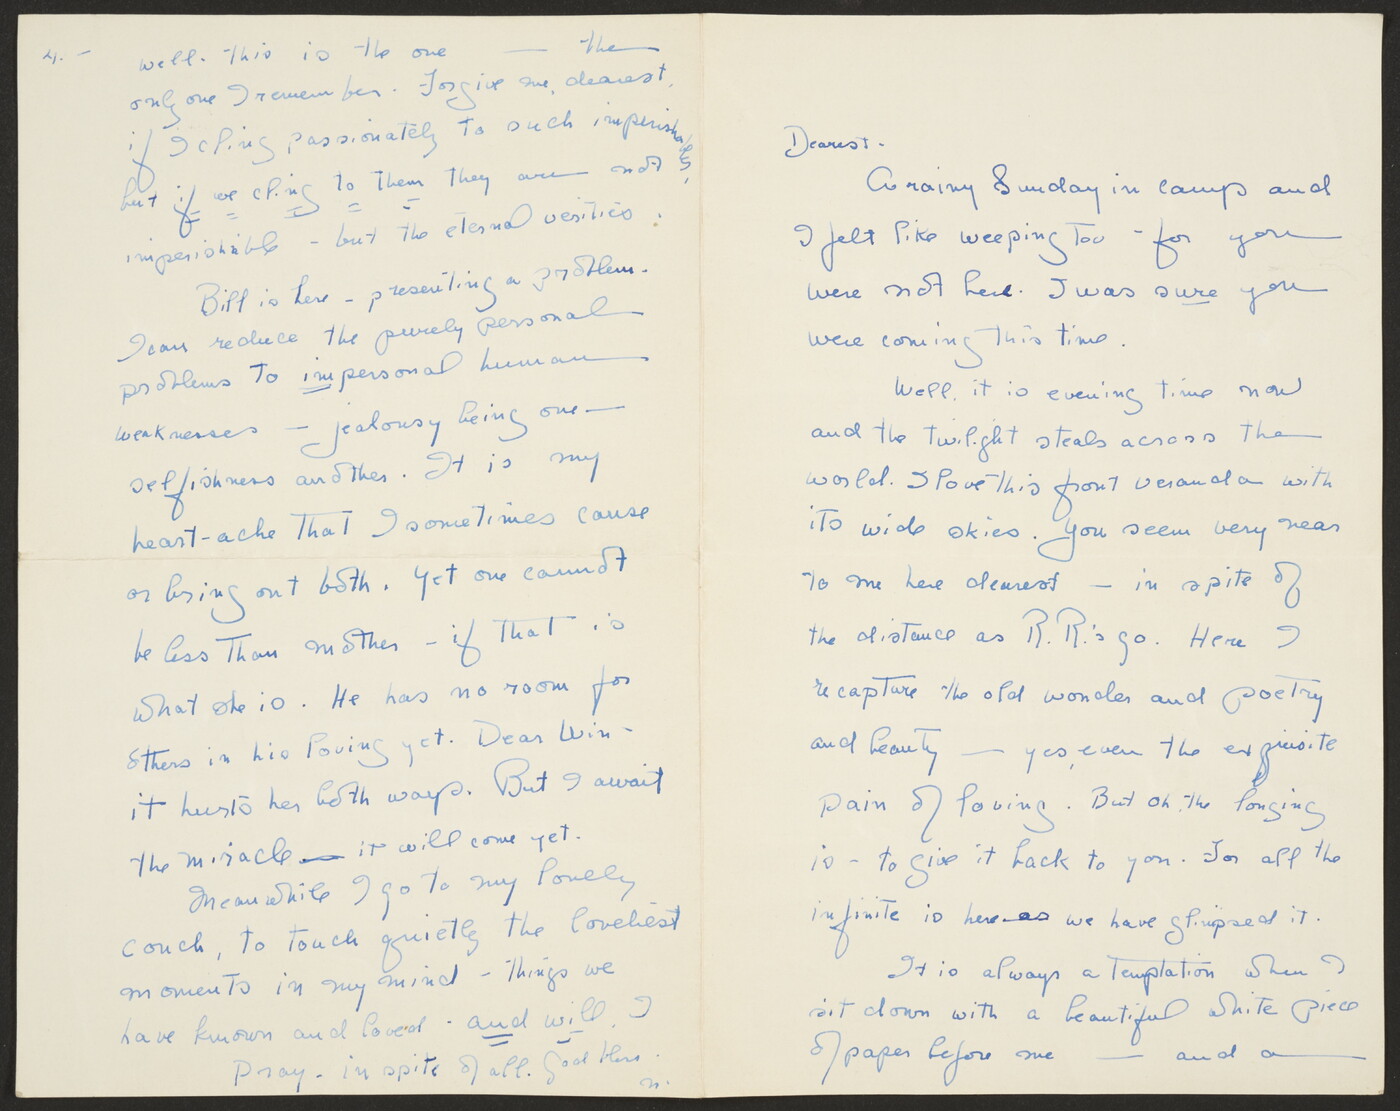 4. -
well. This is the one — the
only one I remember. Forgive me, dearest,
if I cling passionately to such imperishables,
but if we cling to them they are not
imperishable - but the eternal verities.
Bill is here - presenting a problem.
I can reduce the purely personal
problems to impersonal human
weaknesses — jealousy being one —
selfishness another. It is my
heart-ache that I sometimes cause
or bring out both. Yet one cannot
be less than mother - if that is
what she is. He has no room for
others in his loving yet. Dear Win -
it hurts her both ways. But I await
the miracle — it will come yet.
Meanwhile I go to my lovely
couch, to touch quietly the loveliest
moments in my mind - things we
have known and loved - and will, I
pray - in spite of all. God bless.
n.
Dearest -
A rainy Sunday in camp and
I felt like weeping too - for you
were not here. I was sure you
were coming this time.
Well, it is evening time now
and the twilight steals across the
world. I love this front veranda with
its wide skies. You seem very near
to me here dearest — in spite of
the distance as R.R.'s go. Here I
recapture the old wonder and poetry
and beauty — yes, even the exquisite
pain of loving. But oh, the longing
is - to give it back to you. For all the
infinite is here as we have glimpsed it.
It is always a temptation when I
sit down with a beautiful white piece
of paper before me — and a